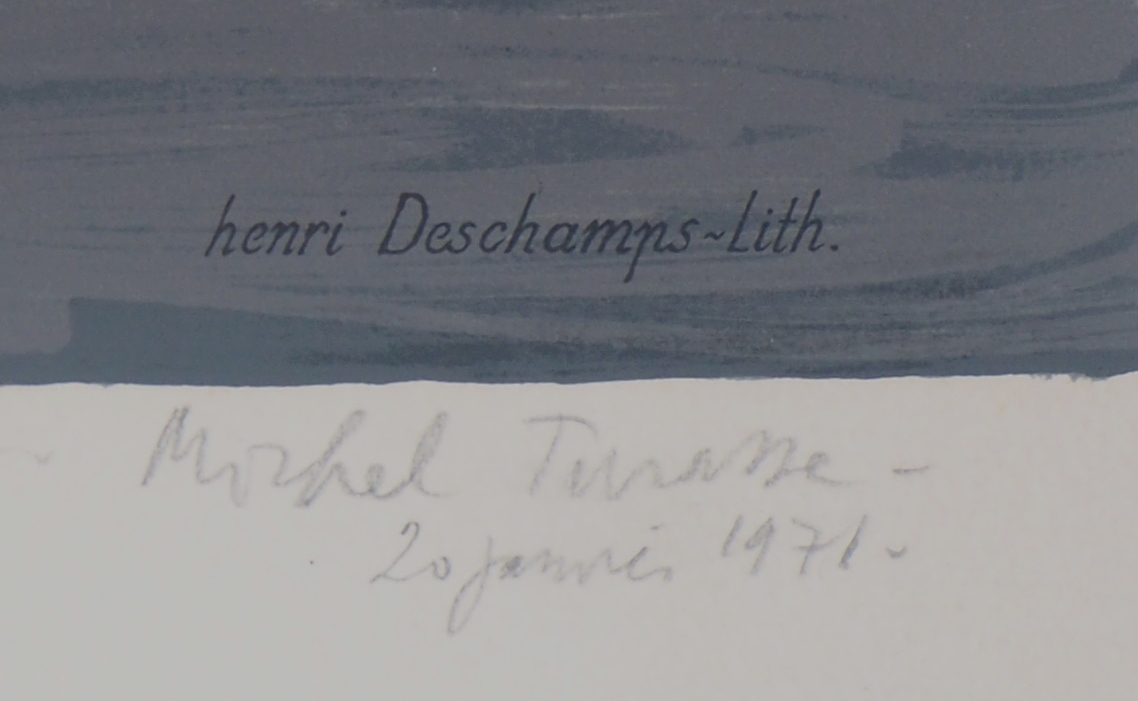 henri Deschamps~Lith.
Michel Turasse -
20 janvier 1971.